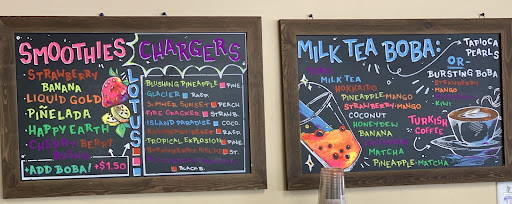 SMOOTHIES
STRAWBERRY
BANANA
LIQUID GOLD
PIÑELADA
HAPPY EARTH
CHERRY BERRY
+ADD BOBA! +$1.50
LOTUS
CHARGERS
BLUSHING PINEAPPLE PINE
GLACIER RASP.
SUMMER SUNSET PEACH
FIRE CRACKER STRAWB.
ISLAND PARADISE COCO.
RASP.
TROPICAL EXPLOSION PINE
ST.
BLACK B.
MILK TEA BOBA:
MILK TEA
HOKKAIDO
PINEAPPLE-MANGO
STRAWBERRY-MANGO
COCONUT
HONEYDEW
BANANA
MATCHA
PINEAPPLE-MATCHA
TAPIOCA
PEARLS
-OR-
BURSTING BOBA
STRAWBERRY
MANGO
KIWI
TURKISH
COFFEE